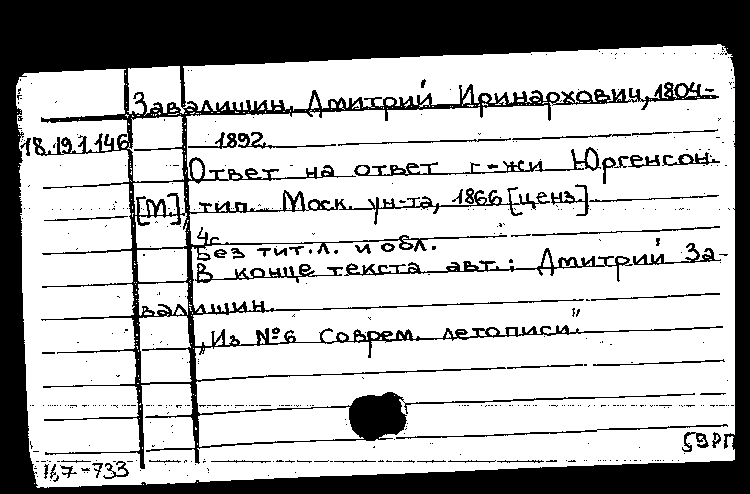 Завалишин, Дмитрий Иринархович, 1804-
18.19.1.146 1892.
Ответ на ответ г-жи Юргенсон.
[М.], тип. Моск. ун-та, 1866 [ценз.]
4с.
Без тит.л. и обл.
В конце текста авт.: Дмитрий За-
валишин.
„Из №6 Соврем. летописи."
59РП
167-733